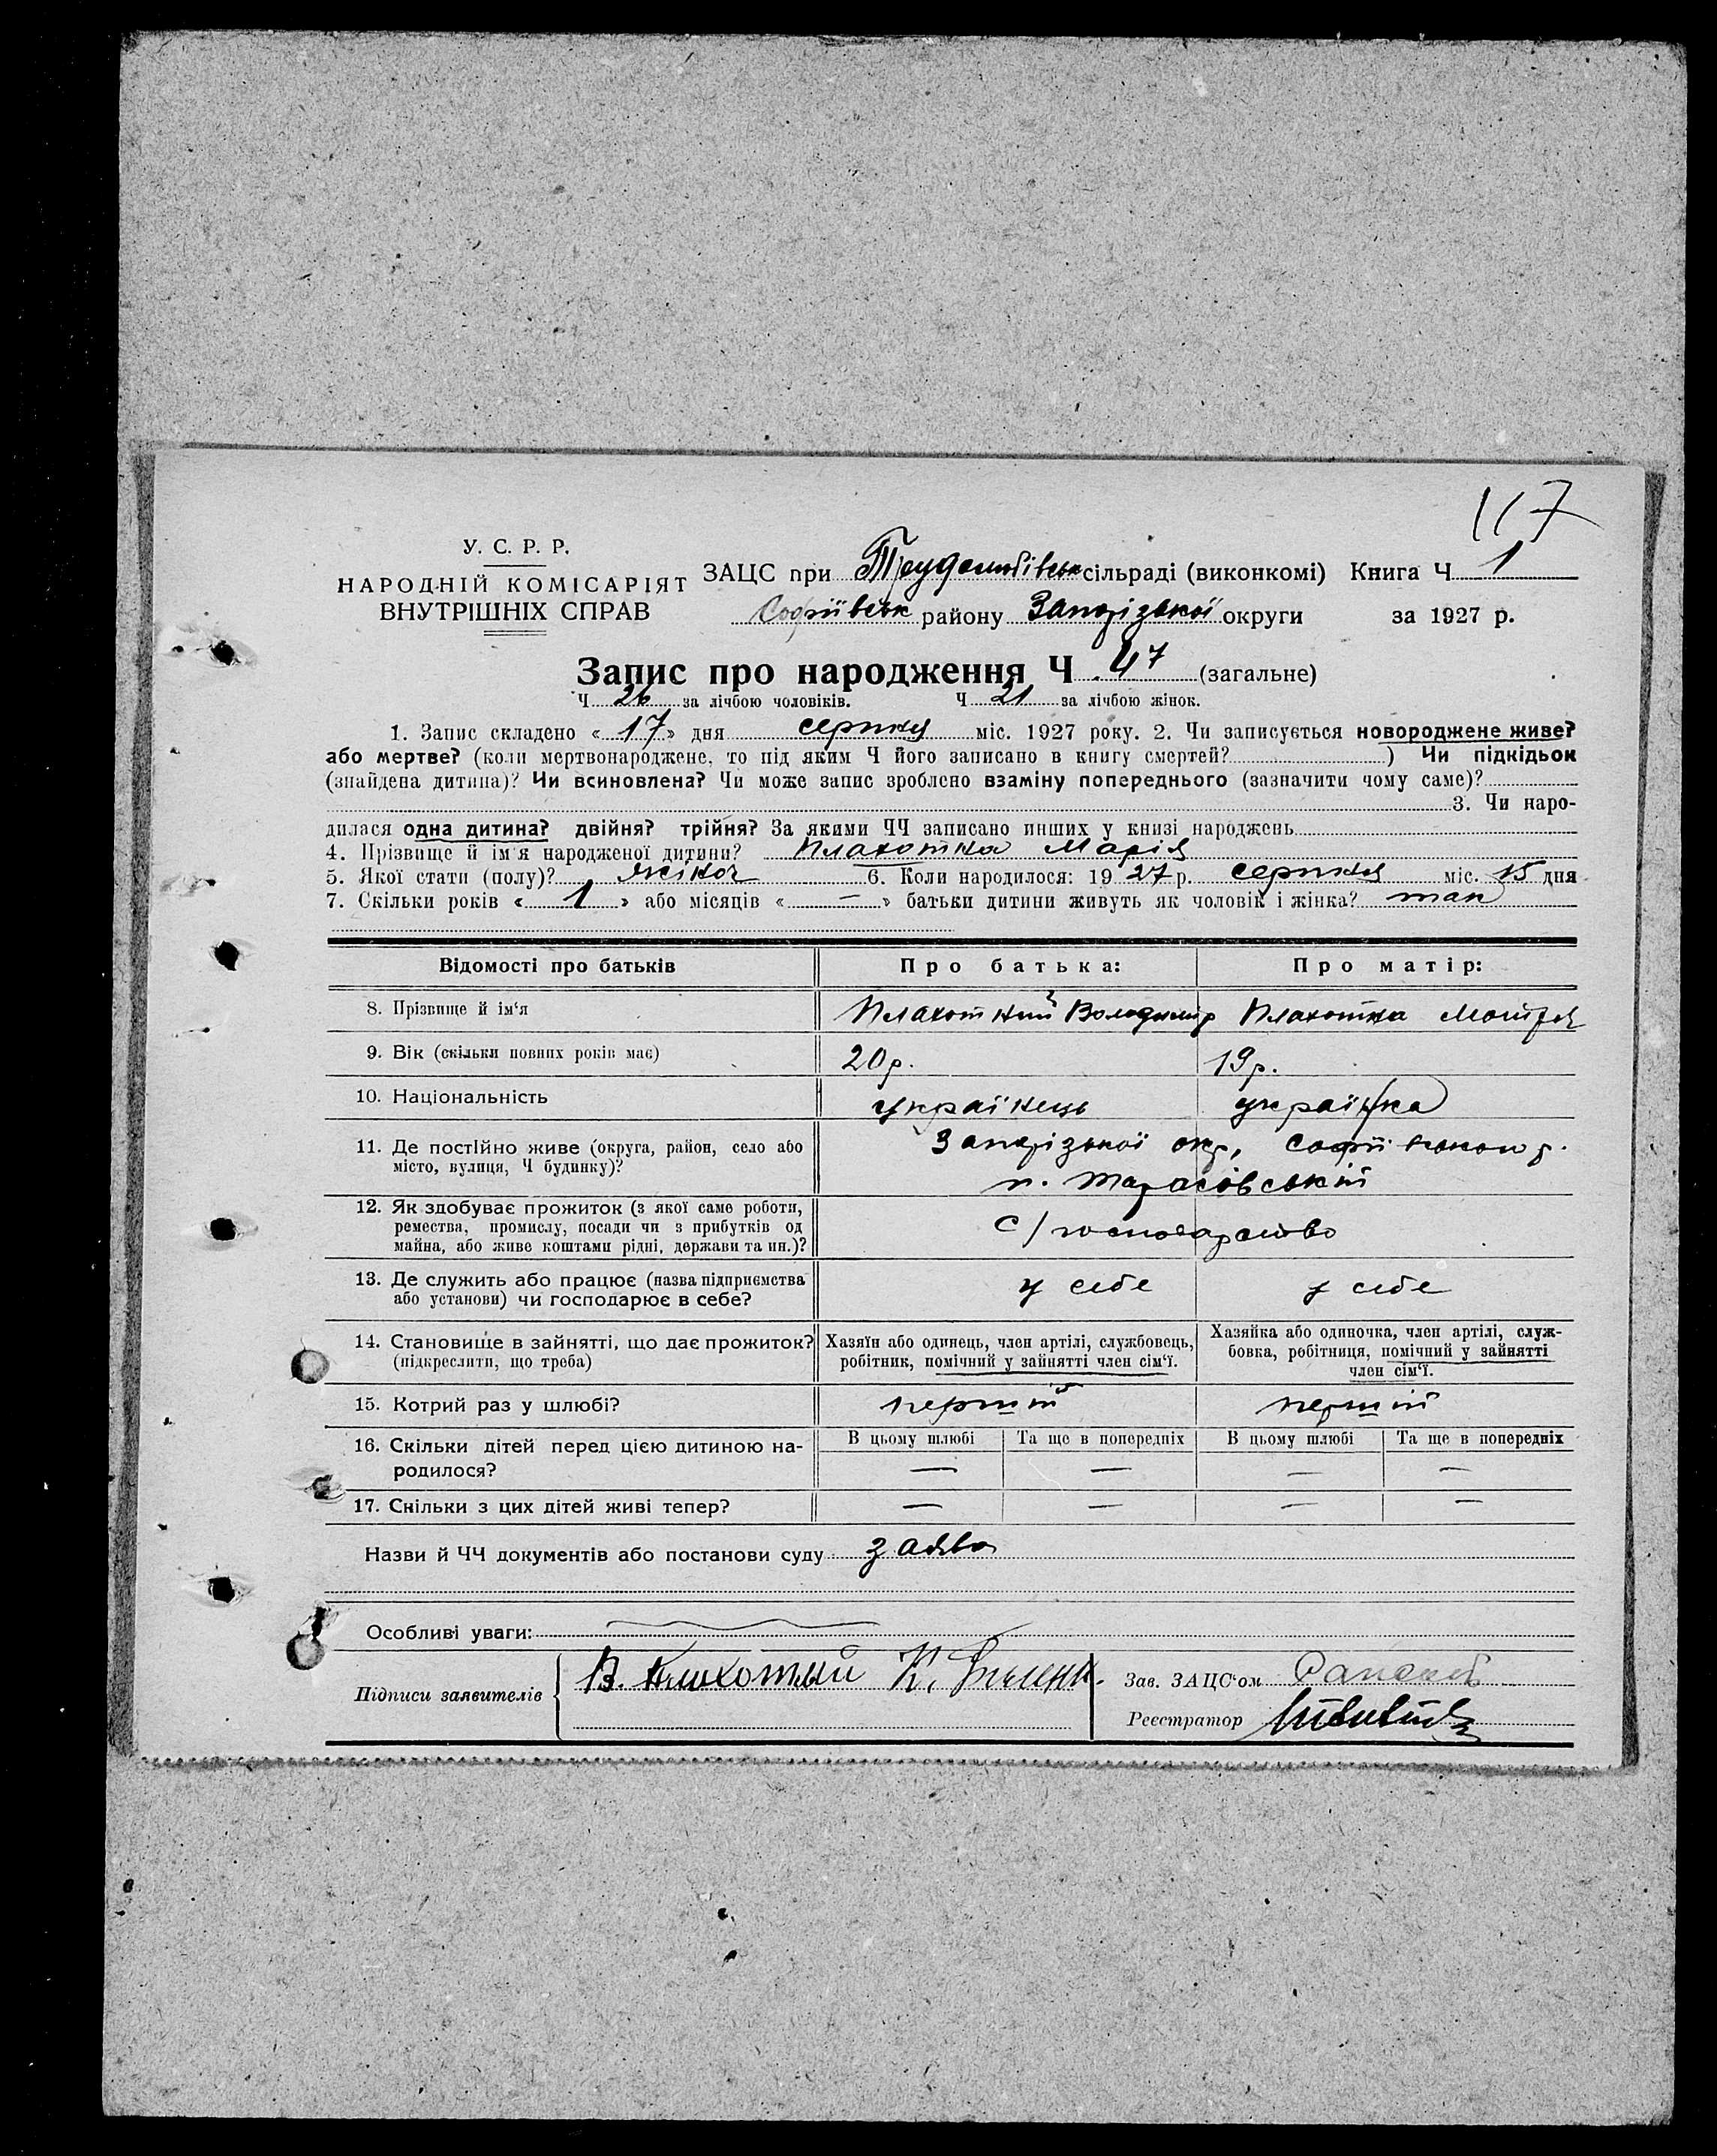 117
У. С. Р. Р.
НАРОДНІЙ КОМІСАРІЯТ
ВНУТРІШНІХ СПРАВ
ЗАЦС при Трудолюбівськ сільраді (виконкомі) Книга Ч 1
Софіївськ району Запорізької округи за 1927 р.
Запис про народження Ч. 47 (загальне)
Ч 26 за лічбою чоловіків. Ч 21 за лічбою жінок.
1. Запис складено « 17 » дня серпня міс. 1927 року. 2. Чи записується новороджене живе?
або мертве? (коли мертвонароджене, то під яким Ч його записано в книгу смертей? ) Чи підкідьок
(знайдена дитина)? Чи всиновлена? Чи може запис зроблено взаміну попереднього (зазначити чому саме)?
3. Чи наро-
дилася одна дитина? двійня? трійня? За якими ЧЧ записано инших у книзі народжень
4. Прізвище й ім'я народженої дитини? Плахотна Марія
5. Якої стати (полу)? жіноч 6. Коли народилося: 19 27 р. серпня міс. 15 дня
7. Скільки років « 1 » або місяців « — » батьки дитини живуть як чоловік і жінка? так
Відомості про батьків Про батька: Про матір:
8. Прізвище й ім'я Плахотний Володимір Плахотна
9. Вік (скільки повних років має) 20 р. 19 р.
10. Національність українець українка
11. Де постійно живе (округа, район, село або
місто, вулиця, Ч будинку)?
Запорізької окр, Софіївського р.
п. Тарасівський
12. Як здобуває прожиток (з якої саме роботи,
ремества, промислу, посади чи з прибутків од
майна, або живе коштами рідні, держави та ин.)?
С/господарство
13. Де служить або працює (назва підприємства
або установи) чи господарює в себе?
у себе у себе
14. Становище в зайнятті, що дає прожиток?
(підкреслити, що треба)
Хазяїн або одинець, член артілі, службовець,
робітник, помічний у зайнятті член сім'ї.
Хазяйка або одиночка, член артілі, служ-
бовка, робітниця, помічний у зайнятті
член сім'ї.
15. Котрий раз у шлюбі? перший перший
16. Скільки дітей перед цією дитиною на-
родилося?
В цьому шлюбі Та ще в попередніх В цьому шлюбі Та ще в попередніх
— — — —
17. Скільки з цих дітей живі тепер? — — — —
Назви й ЧЧ документів або постанови суду заява
Особливі уваги:
Підписи заявителів В. Плахотный К.
Зав. ЗАЦС'ом
Реєстратор